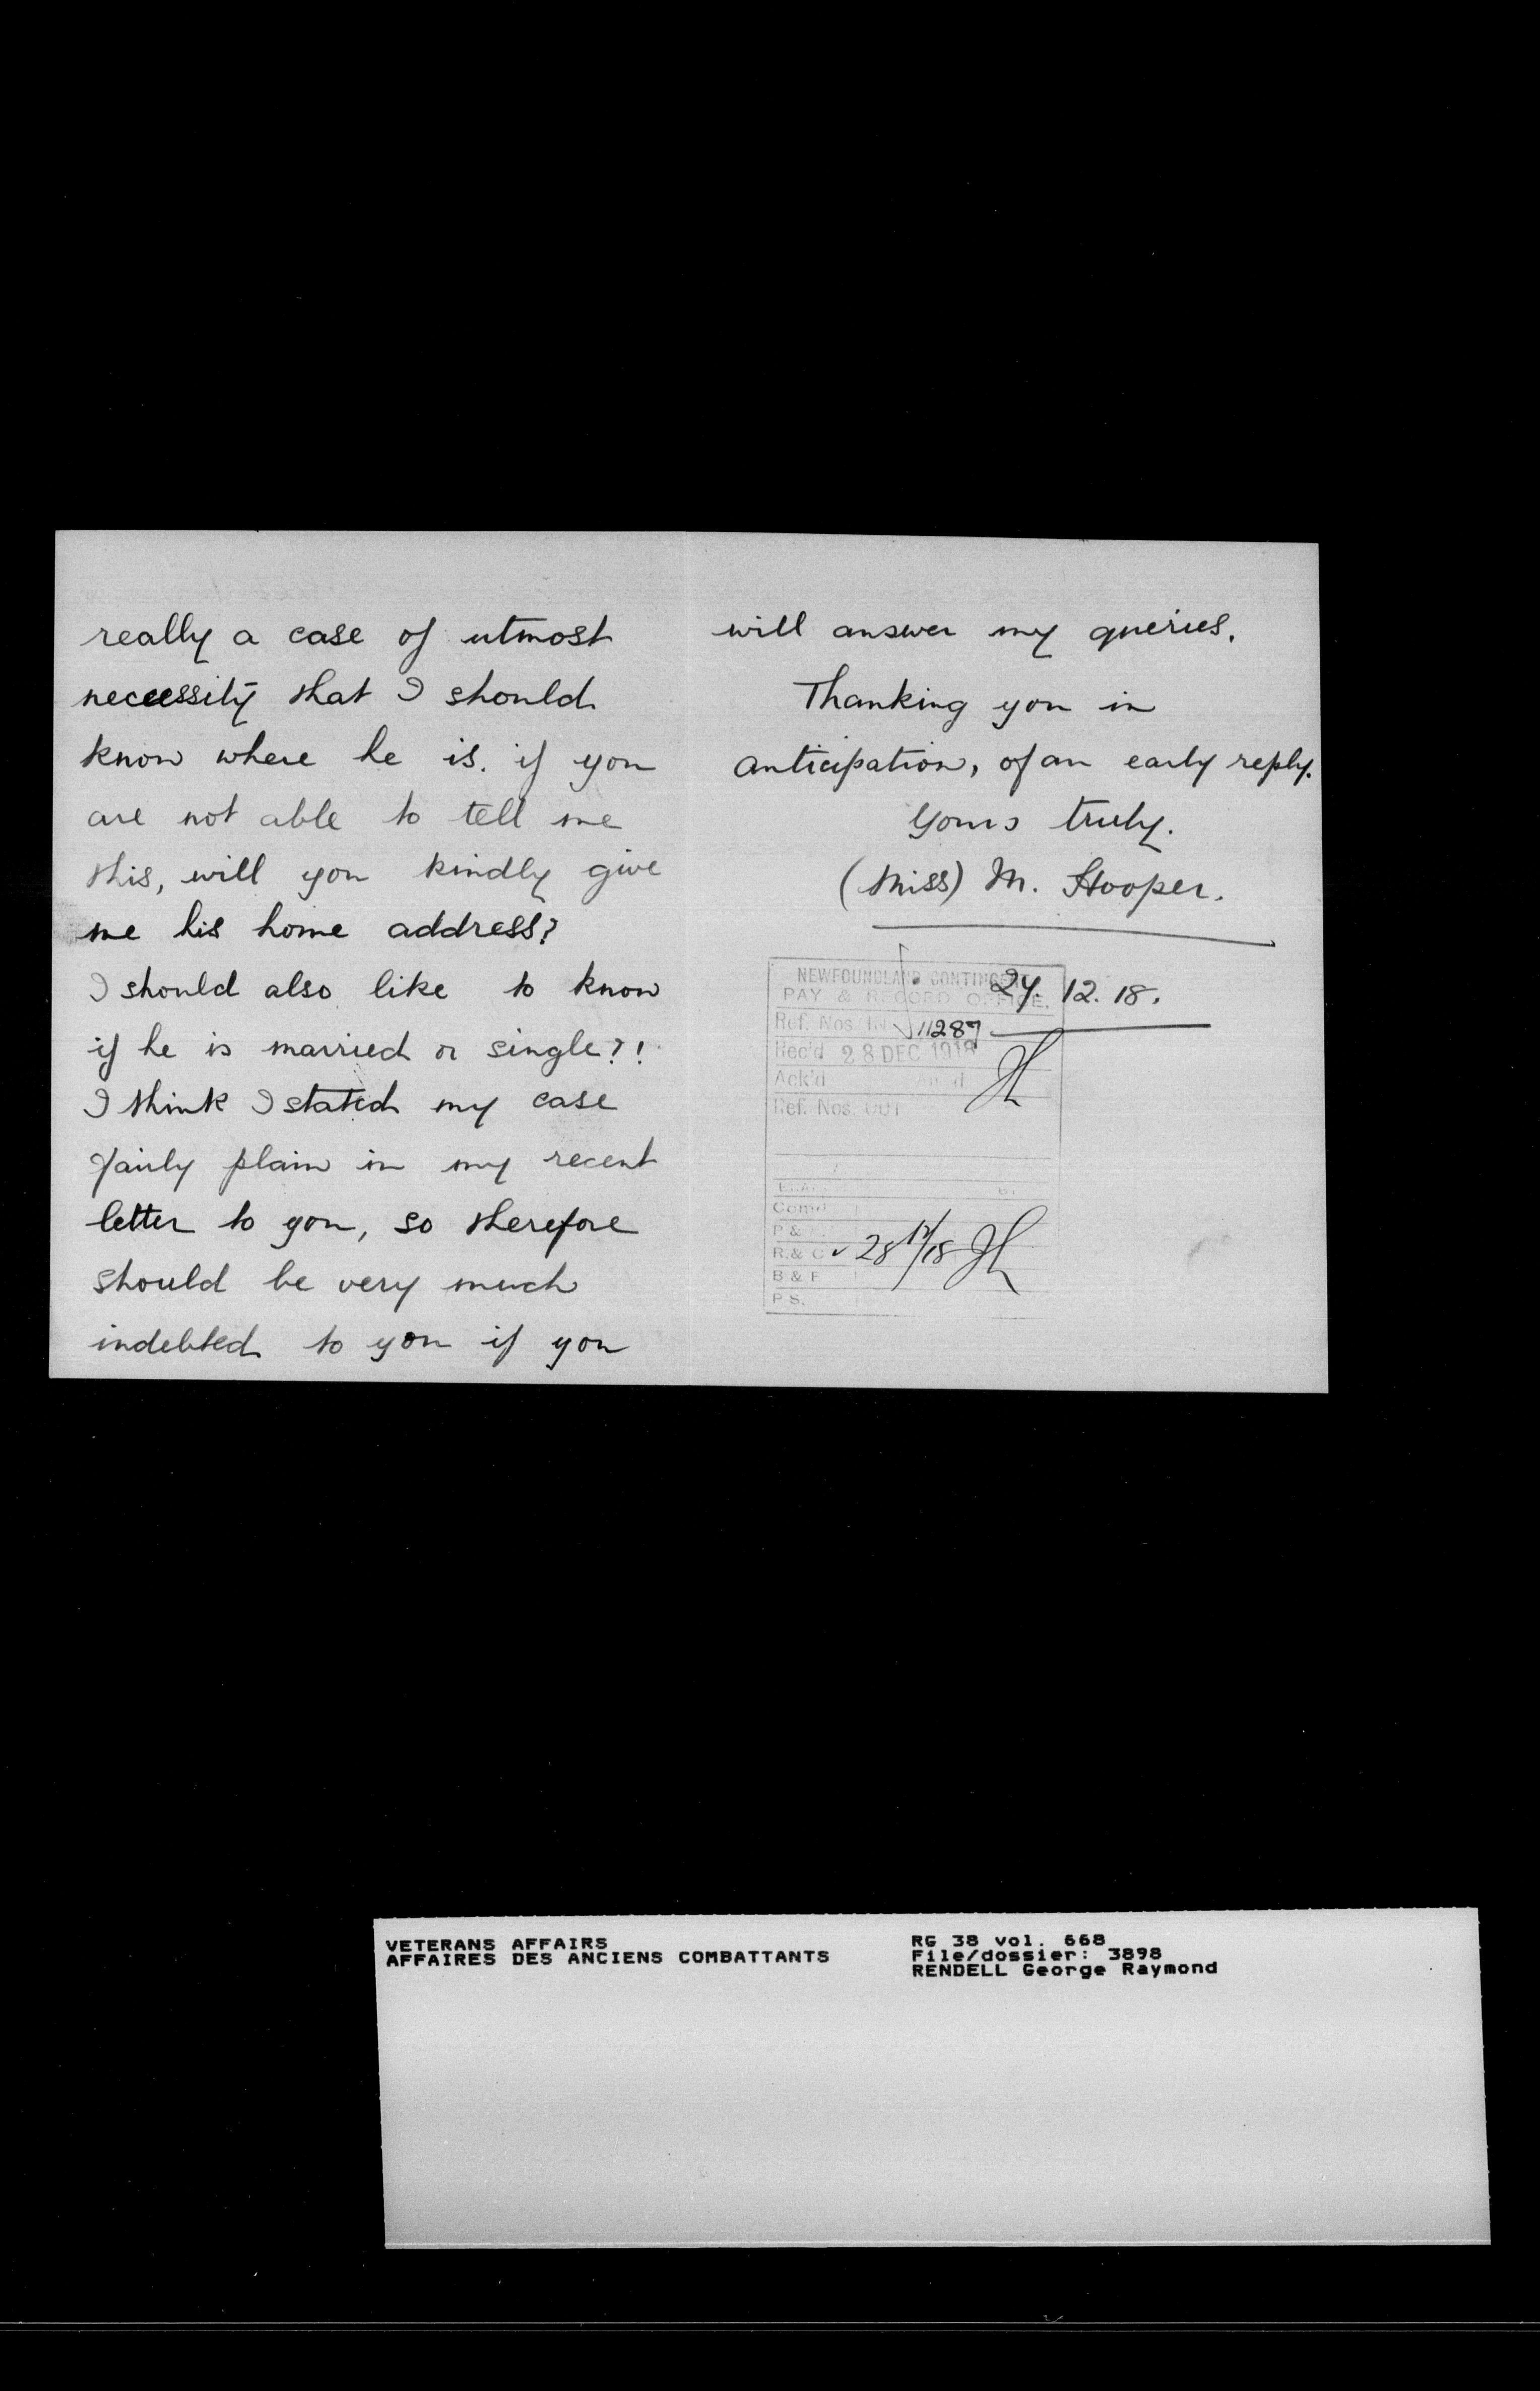 really a case of utmost
neceessity that I should
know where he is. if you
are not able to tell me
this, will you kindly give
me his home address?
I should also like to know
if he is married or single?!
I think I stated my case
fairly plain in my recent
letter to you, so therefore
should be very much
indebted to you if you
will answer my queries.
Thanking you in
anticipation, of an early reply.
Yours truly.
(Miss) M. Hooper.
12. 18.
NEWFOUNDLAND CONTINGENT
PAY & RECORD OFFICE.
Ref. Nos. IN 11287
Rec'd 28 DEC 1918
Ack'd
Ref. Nos. OUT
Comd
P &
R. & C 28 12/18
B & F
P S.
VETERANS AFFAIRS
AFFAIRES DES ANCIENS COMBATTANTS
RG 38 vol. 668
File/dossier: 3898
RENDELL George Raymond